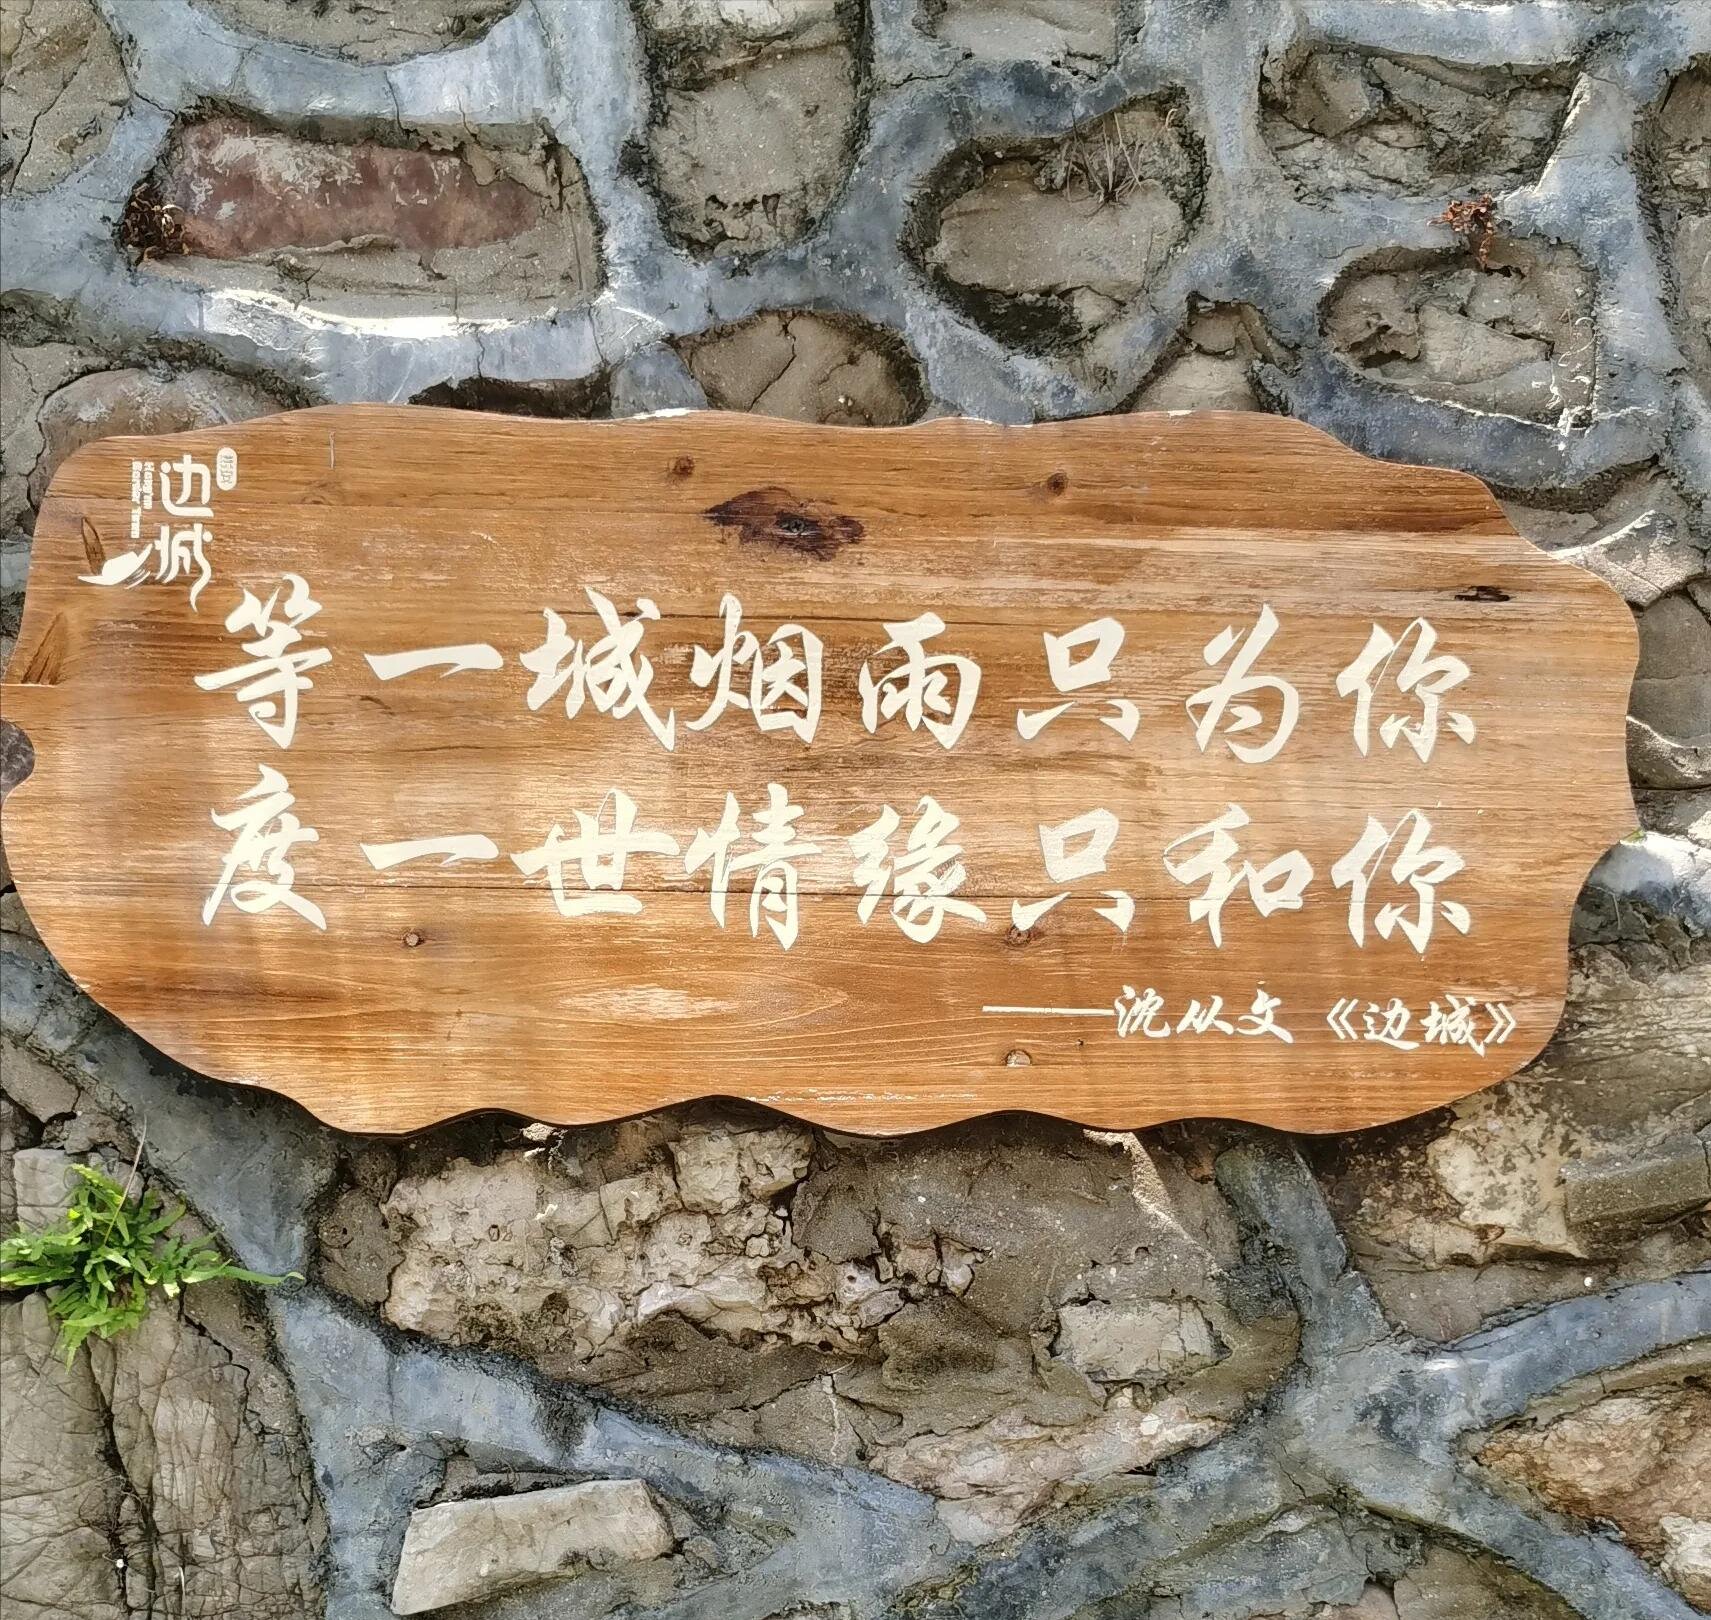 边城
等一城烟雨只为你
度一世情缘只和你
——沈从文《边城》